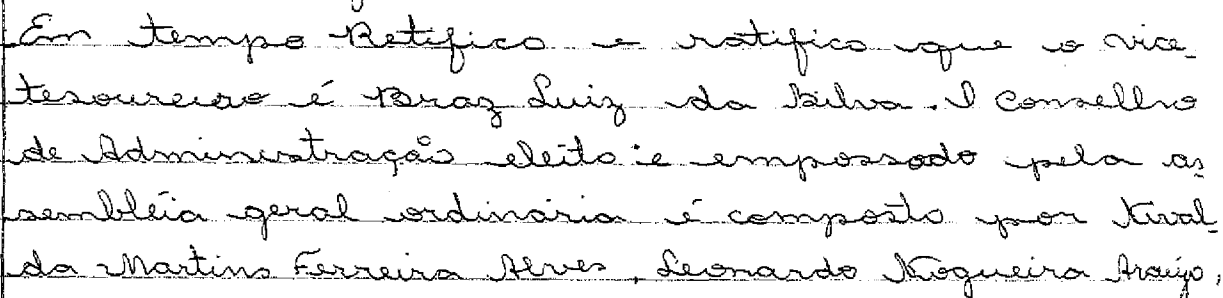 Em tempo Retifico e ratifico que o vice-
tesoureiro é Braz Luiz da Silva. O Conselho
de Administração eleito e empossado pela as
sembléia geral ordinária é composto por Nival
da Martins Ferreira Alves, Leonardo Nogueira Araújo,